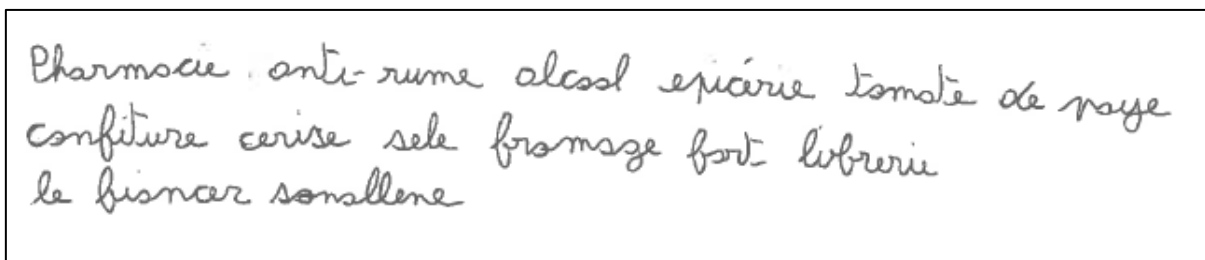 Pharmacie anti-rume alcool epicérie tomate de paye
confiture cerise sele fromage fort librerie
le fiancer sonallene